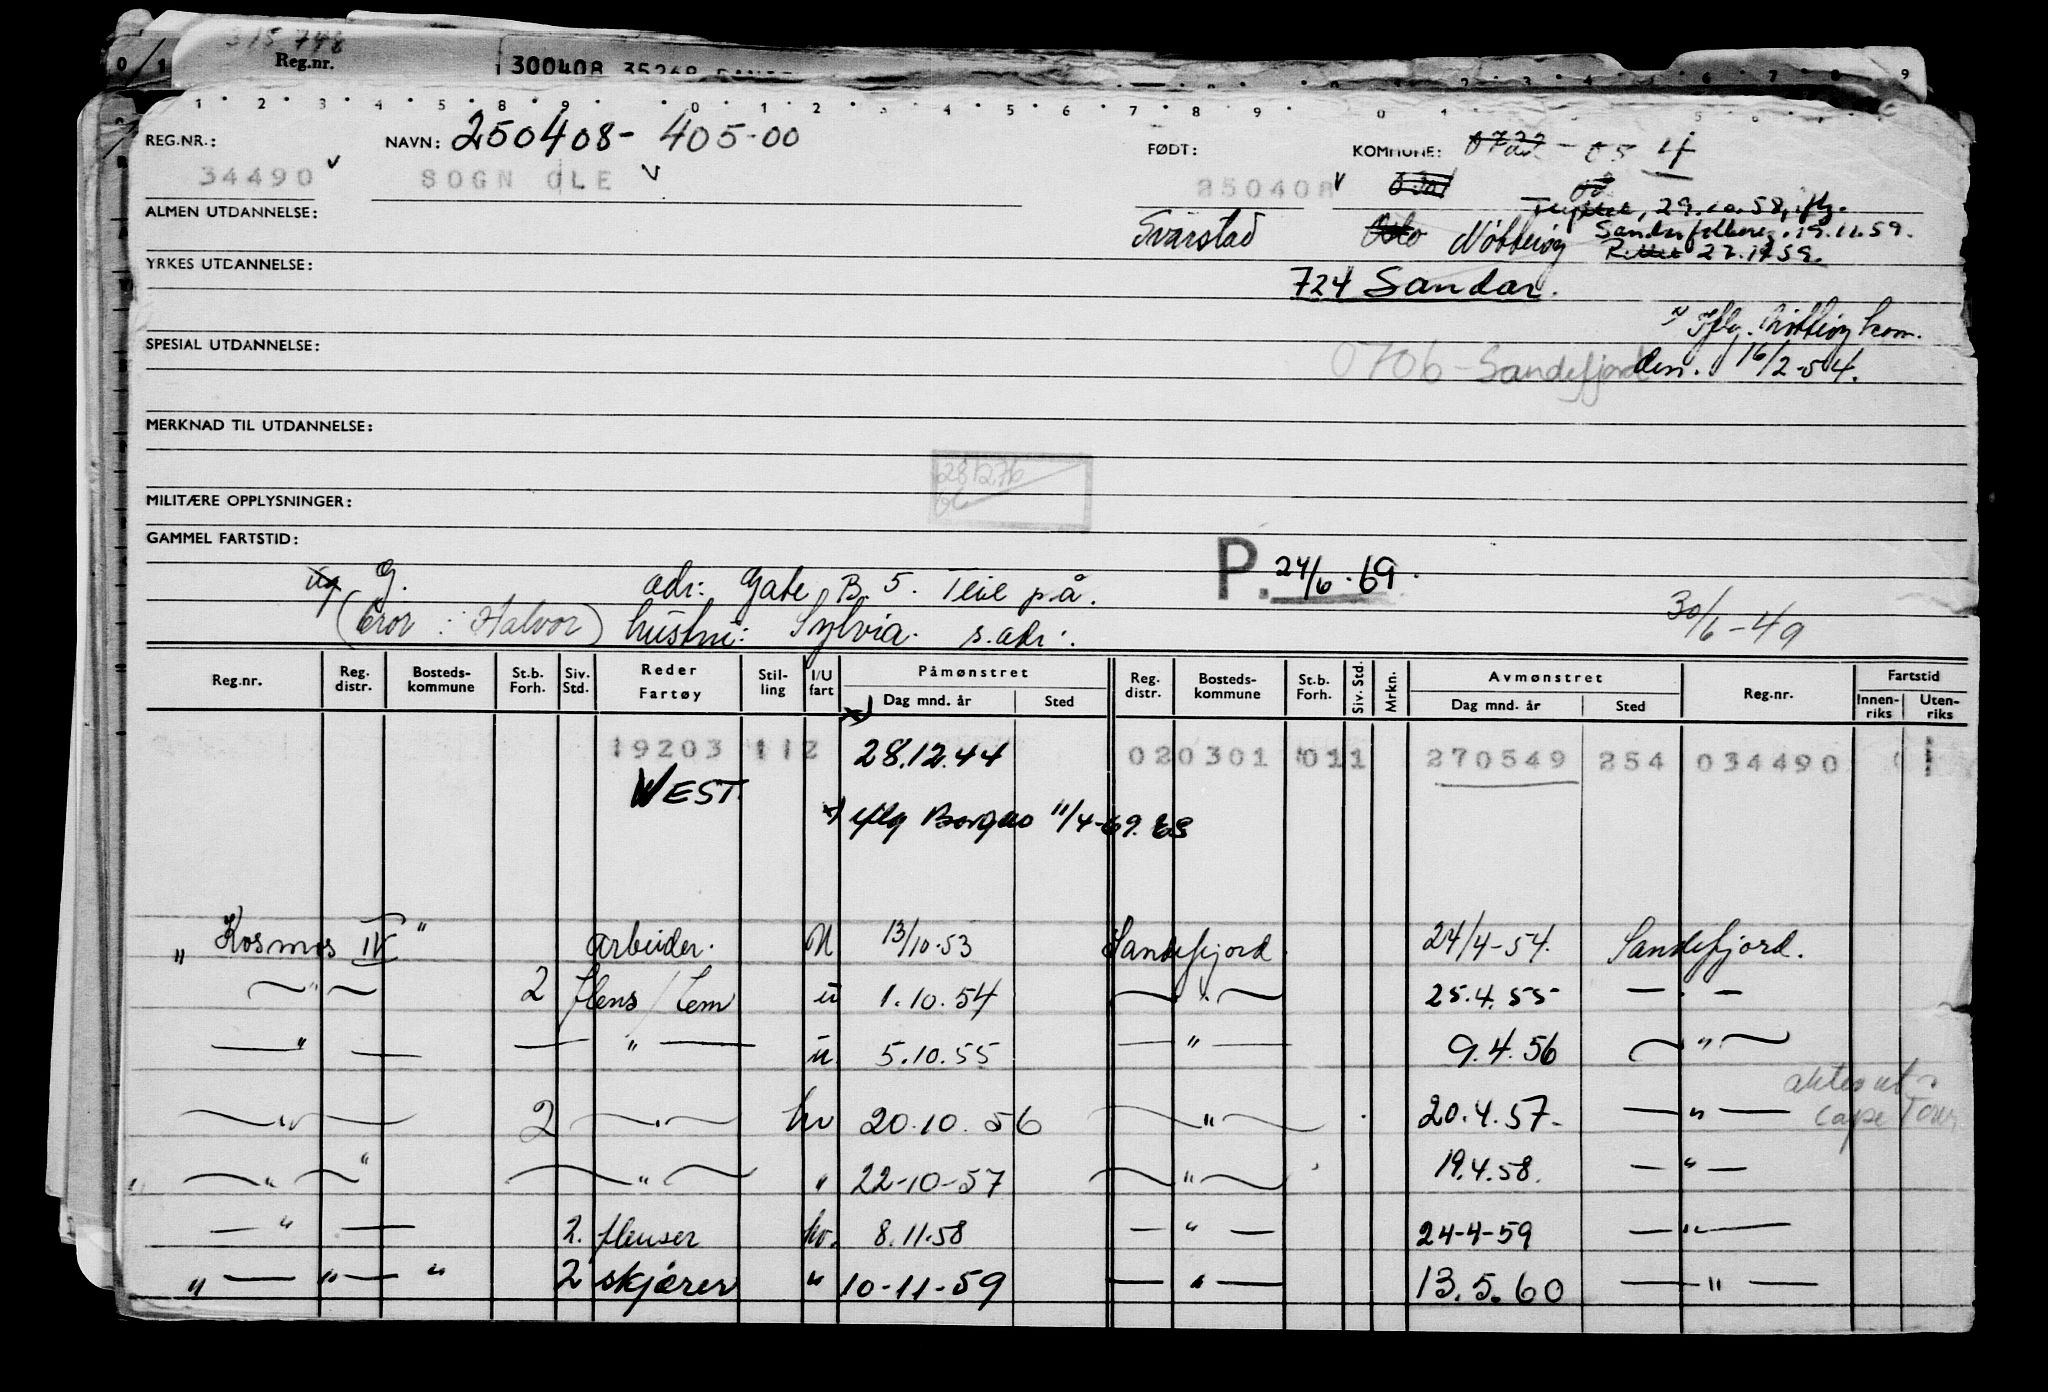 315 748
Reg.nr.
300408 35268
REG.NR.: NAVN: 250408- 405-00 FØDT: KOMMUNE: 0722 -
34490 v SOGN OLE v 250408 v
ALMEN UTDANNELSE: Flyttet, 29.10.58, iflg.
Svarstad Oslo Nøtterøy Sandar folkereg. 19.11.59.
YRKES UTDANNELSE: Rettet 27.11.59.
724 Sandar.
Iflg. Nøtterøy kom.
SPESIAL UTDANNELSE: 0706 - Sandefjord den. 16/2-54.
MERKNAD TIL UTDANNELSE:
281276
MILITÆRE OPPLYSNINGER:
GAMMEL FARTSTID:
ug G. adr: Gate B. 5. Teie p.å. P. 24/6.69.
(bror: Halvor) hustru: Sylvia. s.adr:. 30/6-49
Reg.nr. Reg. distr. Bosteds- kommune St.b. Forh. Siv. Std. Reder Fartøy Stil- ling I/U fart Påmønstret Dag mnd. år Sted Reg. distr. Bosteds- kommune St.b. Forh. Siv. Std. Mrkn. Avmønstret Dag mnd. år Sted Reg.nr. Fartstid Innen- riks Uten- riks
x)
19203 112 28.12.44 020301 011 270549 254 034490
WEST
x) iflg Borgen 11/4-69. ES
" Kosmos IV " arbeider. U 13/10.53 Sandefjord. 24/4-54. Sandefjord.
— " — 2 flens / lem u 1.10.54 — " — 25.4.55 — " —
— " — — — " — u. 5.10.55 — " — 9.4.56 — " —
— " — 2 — " — hv 20.10.56 — " — 20.4.57- — " —
Cape Town
" — " — " — " — " 22-10-57 — " — 19.4.58. — " —
— " — 2. flenser hv. 8.11.58 — " — 24-4-59 — " —
" — " — " 2 skjærer " 10-11-59 — " — 13.5.60 — " —